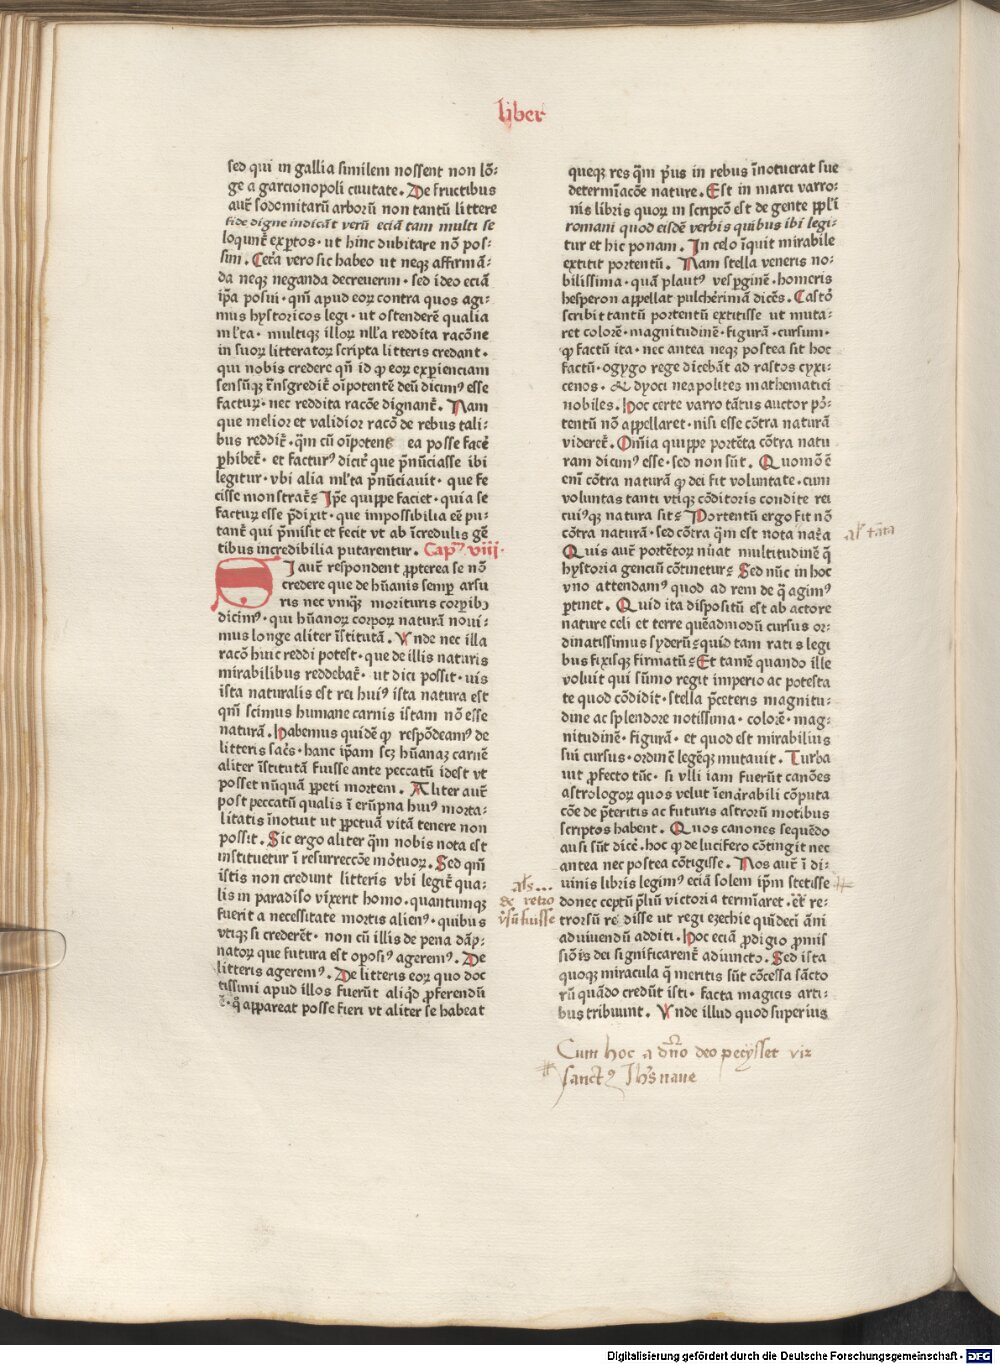 liber
sed qui in gallia similem nossent non lō⸗
ge a garcionopoli ciuitate. De fructibus
aut̄ sodomitarū arborū non tantū littere
fide digne indicāt verū eciā tam multi se
loqunt̄ exꝑtos · ut hinc dubitare nō pos⸗
sim. Cet̄a vero sic habeo ut neqꝫ affirmā⸗
da neqꝫ neganda decreuerim · sed ideo eciā
ip̄a posui · qm̄ apud eoꝝ contra quos agi⸗
mus hystoricos legi · ut ostenderē qualia
ml̄ta · multiqꝫ illoꝝ nll̄a reddita racōne
in suoꝝ litteratoꝝ scripta litteris credant ·
qui nobis credere qn̄ id ꝙ eoꝝ exꝑienciam
sensūqꝫ t̄nsgredit̄ oīpotentē deū dicimꝰ esse
facturꝰ · nec reddita racōe dignant̄. Nam
que melior et validior racō de rebus tali⸗
bus reddit̄ · qm̄ cū oīpotens ea posse facē
ꝓhibet̄ · et facturꝰ dicit̄ que p̄nūciasse ibi
legitur · vbi alia ml̄ta p̄nūciauit · que fe
cisse monstrat̄ Ip̄e quippe faciet · quia se
facturꝰ esse p̄dixit · que impossibilia eē pu⸗
tant̄ qui p̄misit et fecit vt ab īcredulis gē
tibus incredibilia putarentur. Cap̄ᵐ viij ·
SI aut̄ respondent ꝓpterea se nō
credere que de hūanis semꝑ arsu
ris nec vnqꝫ morituris corꝑibꝫ
dicimꝰ · qui hūanoꝝ corpoꝝ naturā noui⸗
mus longe aliter īstitutā. Vnde nec illa
racō huic reddi potest · que de illis naturis
mirabilibus reddebat̄ · ut dici possit · uis
ista naturalis est rei huiꝰ ista natura est
qm̄ scimus humane carnis istam nō esse
naturā. Habemus quidē ꝙ respōdeamꝰ de
litteris sac̄s · hanc ip̄am scꝫ hūanaꝫ carnē
aliter īstitutā fuisse ante peccatū idest vt
posset nūquā ꝑpeti mortem. Aliter aut̄
post peccatū qualis ī erūpna huiꝰ morta⸗
litatis īnotuit ut ꝑpetuā vitā tenere non
possit. Sic ergo aliter qm̄ nobis nota est
instituetur ī resurreccōe mōtuoꝝ. Sed qm̄
istis non credunt litteris vbi legit̄ qua⸗
lis in paradiso vixerit homo · quantumqꝫ
fuerit a necessitate mortis alienꝰ · quibus
vtiqꝫ si crederēt · non cū illis de pena dāp⸗
natoꝝ que futura est oposiꝰ ageremꝰ. De
litteris ageremꝰ. De litteris eoꝝ quo doc
tissimi apud illos fuerūt aliqd̄ ꝓferendū
ē · q̄ appareat posse fieri vt aliter se habeat
queqꝫ res qm̄ p̄us in rebus īnotucrat sue
determīacōe nature. Est in marci varro⸗
nis libris quoꝝ in scripcō est de gente ppl̄i
romani quod eisdē verbis quibus ibi legi⸗
tur et hic ponam. In celo īquit mirabile
extitit portentū. Nam stella veneris no⸗
bilissima · quā plautꝰ vesꝑginē · homerꝰ
hesperon appellat pulcherimā dicēs. Castoᵣ
scribit tantū portentū extitisse ut muta⸗
ret colorē · magnitudinē · figurā · cursum ·
ꝙ factū ita · nec antea neqꝫ postea sit hoc
factū · ogygo rege dicebāt ad rastos cyxi⸗
cenos · & dyoci neapolites mathematici
nobiles. Hoc certe varro tātus auctor pōᵣ
tentū nō appellaret · nisi esse cōtra naturā
videret̄. Omīa quippe portēta cōtra natu
ram dicimꝰ esse · sed non sūt. Quomō ē
enī cōtra naturā ꝙ dei fit voluntate · cum
voluntas tanti vtiqꝫ cōditoris condite rei
cuiꝰqꝫ natura sit Portentū ergo fit nō
cōtra naturā · sed cōtra qm̄ est nota nat̄a
al̓ tāta
Quis aut̄ portētoꝝ nūat multitudinē q̄
hystoria genciū cōtinetur Sed nūc in hoc
vno attendamꝰ quod ad rem de q̄ agimꝰ
ꝑtinet. Quid ita dispositū est ab actore
nature celi et terre quēadmodū cursus or⸗
dinatissimus syderū quid tam ratis legi
bus fixisqꝫ firmatū Et tamē quando ille
voluit qui sūmo regit imperio ac potesta
te quod cōdidit · stella p̄ceteris magnitu⸗
dine ac splendore notissima · colorē · mag⸗
nitudinē · figurā · et quod est mirabilius
sui cursus · ordinē legēqꝫ mutauit. Turba
uit ꝓfecto tūc · si vlli iam fuerūt canōes
astrologoꝝ quos velut īenarabili cōputa
cōe de p̄teritis ac futuris astrorū motibus
scriptos habent. Quos canones sequēdo
ausi sūt dicē · hoc ꝙ de lucifero cōtingit nec
antea nec postea cōtigisse. Nos aut̄ ī di⸗
uinis libris legimꝰ eciā solem ip̄m stetisse
donec ceptū p̄liū victoria termīaret. et re⸗
trorsū redisse ut regi ezechie quīdeci āni
aduiuendū additi. Hoc eciā ꝓdigio ꝓmis
siōis dei significarent̄ adiuncto. Sed ista
quoqꝫ miracula q̄ meritis sūt cōcessa sācto
rū quādo credūt isti · facta magicis arti⸗
bus tribuunt. Vnde illud quod superius
al̓s...
& retro
v̄sū fuisse
Cum hoc a dn̄o deo pecÿsset vir
sanctꝰ Ihs̄ naue
Digitalisierung gefördert durch die Deutsche Forschungsgemeinschaft - DFG